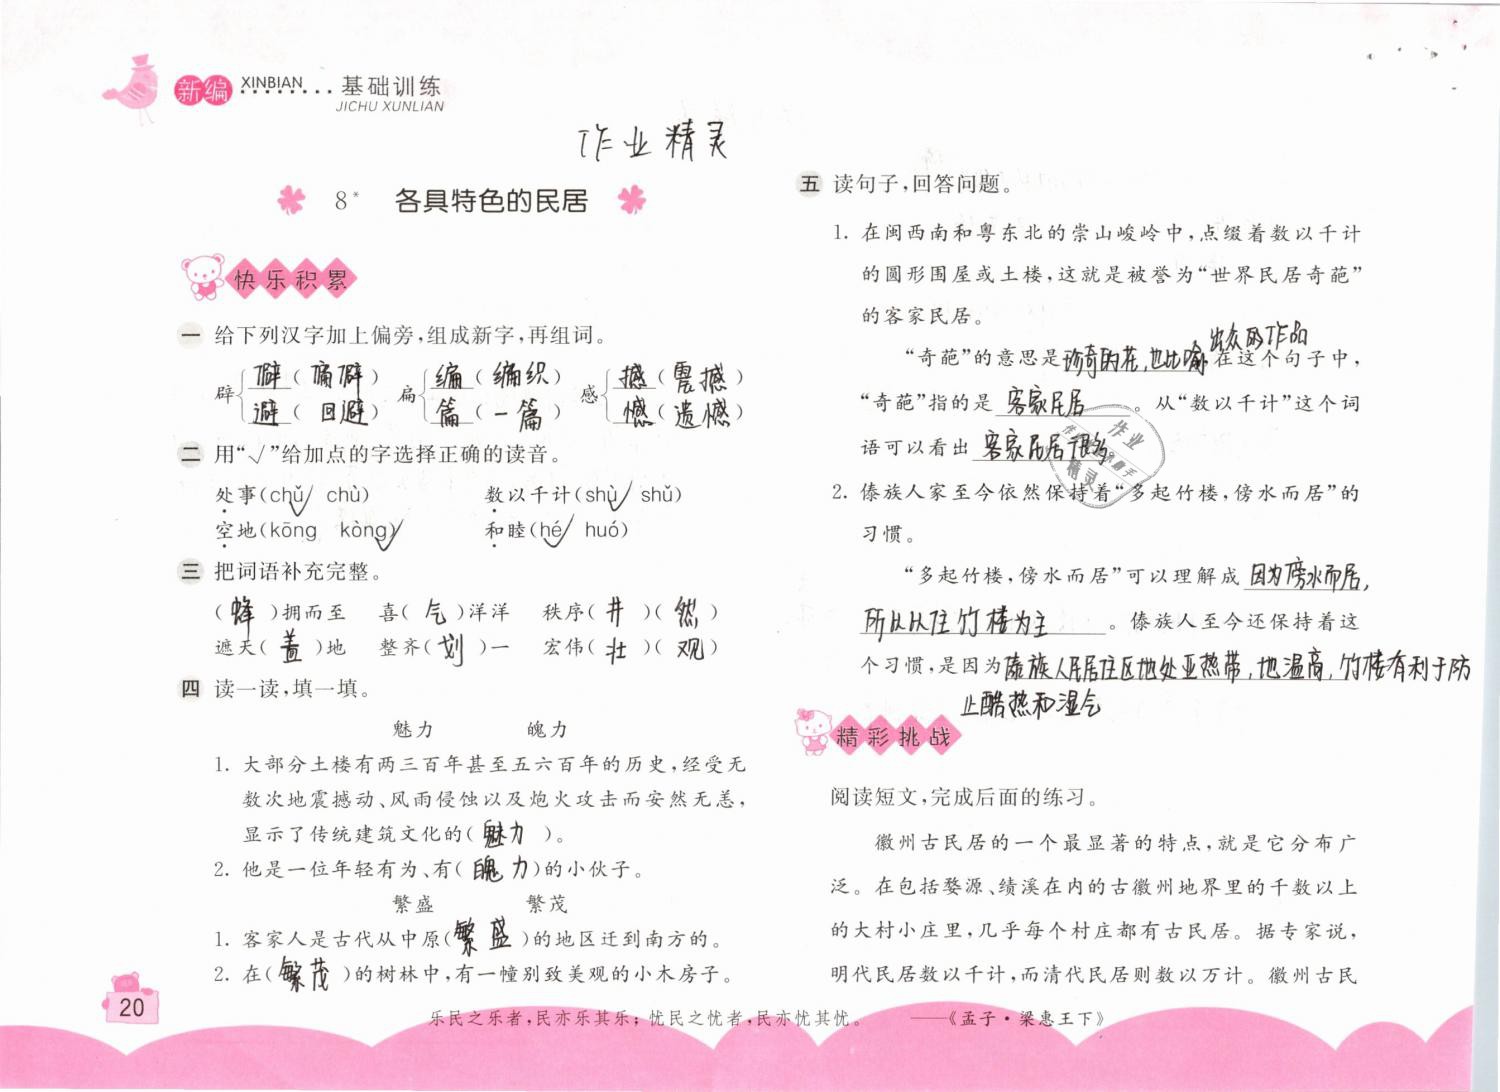 新编 XINBIAN 基础训练
JICHU XUNLIAN
作业精灵
8* 各具特色的民居
快乐积累
一 给下列汉字加上偏旁,组成新字,再组词。
辟 僻(偏僻) 扁 编(编织) 感 撼(震撼)
避(回避) 篇(一篇) 憾(遗憾)
二 用“√”给加点的字选择正确的读音。
处事(chǔ√ chù) 数以千计(shù√ shǔ)
空地(kōng kòng√) 和睦(hé√ huó)
三 把词语补充完整。
(蜂)拥而至 喜(气)洋洋 秩序(井)(然)
遮天(盖)地 整齐(划)一 宏伟(壮)(观)
四 读一读,填一填。
魅力 魄力
1. 大部分土楼有两三百年甚至五六百年的历史,经受无
数次地震撼动、风雨侵蚀以及炮火攻击而安然无恙,
显示了传统建筑文化的(魅力)。
2. 他是一位年轻有为、有(魄力)的小伙子。
繁盛 繁茂
1. 客家人是古代从中原(繁盛)的地区迁到南方的。
2. 在(繁茂)的树林中,有一幢别致美观的小木房子。
五 读句子,回答问题。
1. 在闽西南和粤东北的崇山峻岭中,点缀着数以千计
的圆形围屋或土楼,这就是被誉为“世界民居奇葩”
的客家民居。
出众的作品
“奇葩”的意思是珍奇的花,也比喻在这个句子中,
“奇葩”指的是 客家民居 。从“数以千计”这个词
语可以看出 客家民居很多
2. 傣族人家至今依然保持着“多起竹楼,傍水而居”的
习惯。
“多起竹楼,傍水而居”可以理解成 因为傍水而居,
所以以住竹楼为主 。傣族人至今还保持着这
个习惯,是因为傣族人民居住区地处亚热带,地温高,竹楼有利于防
止酷热和湿气
精彩挑战
阅读短文,完成后面的练习。
徽州古民居的一个最显著的特点,就是它分布广
泛。在包括婺源、绩溪在内的古徽州地界里的千数以上
的大村小庄里,几乎每个村庄都有古民居。据专家说,
明代民居数以千计,而清代民居则数以万计。徽州古民
20
乐民之乐者,民亦乐其乐;忧民之忧者,民亦忧其忧。 ——《孟子·梁惠王下》